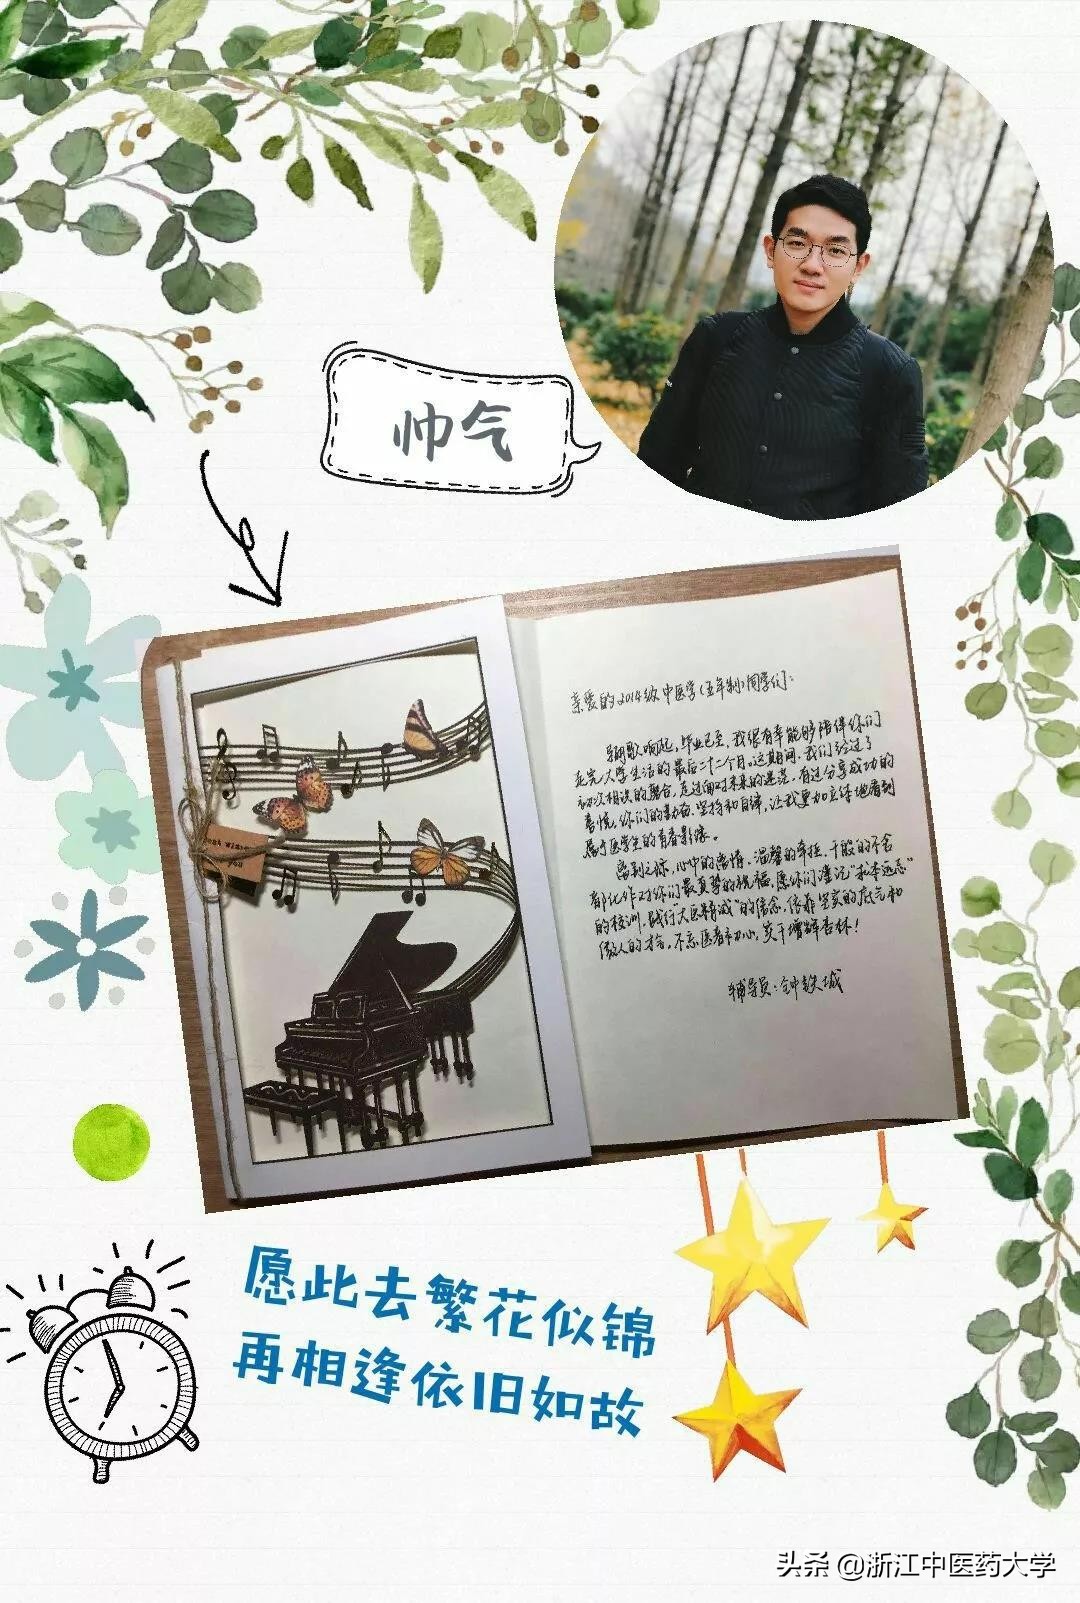 帅气
亲爱的2014级中医学(五年制)同学们:
骊歌响起,毕业已至,我很有幸能够陪伴你们
走完大学生活的最后二十二个月。这期间,我们经过了
初次相识的磨合,走过面对未来的迷茫,有过分享成功的
喜悦,你们的勤奋、坚持和自律,让我更加立体地看到
属于医学生的青春影像。
离别之际,心中的离情、温馨的牵挂、千般的不舍
都化作对你们最真挚的祝福,愿你们谨记"和本远志"
的校训,践行"大医精诚"的信念,依靠坚实的底气和
做人的才气,不忘医者初心,实干增辉杏林!
辅导员:钟铁城
愿此去繁花似锦
再相逢依旧如故
头条 @浙江中医药大学